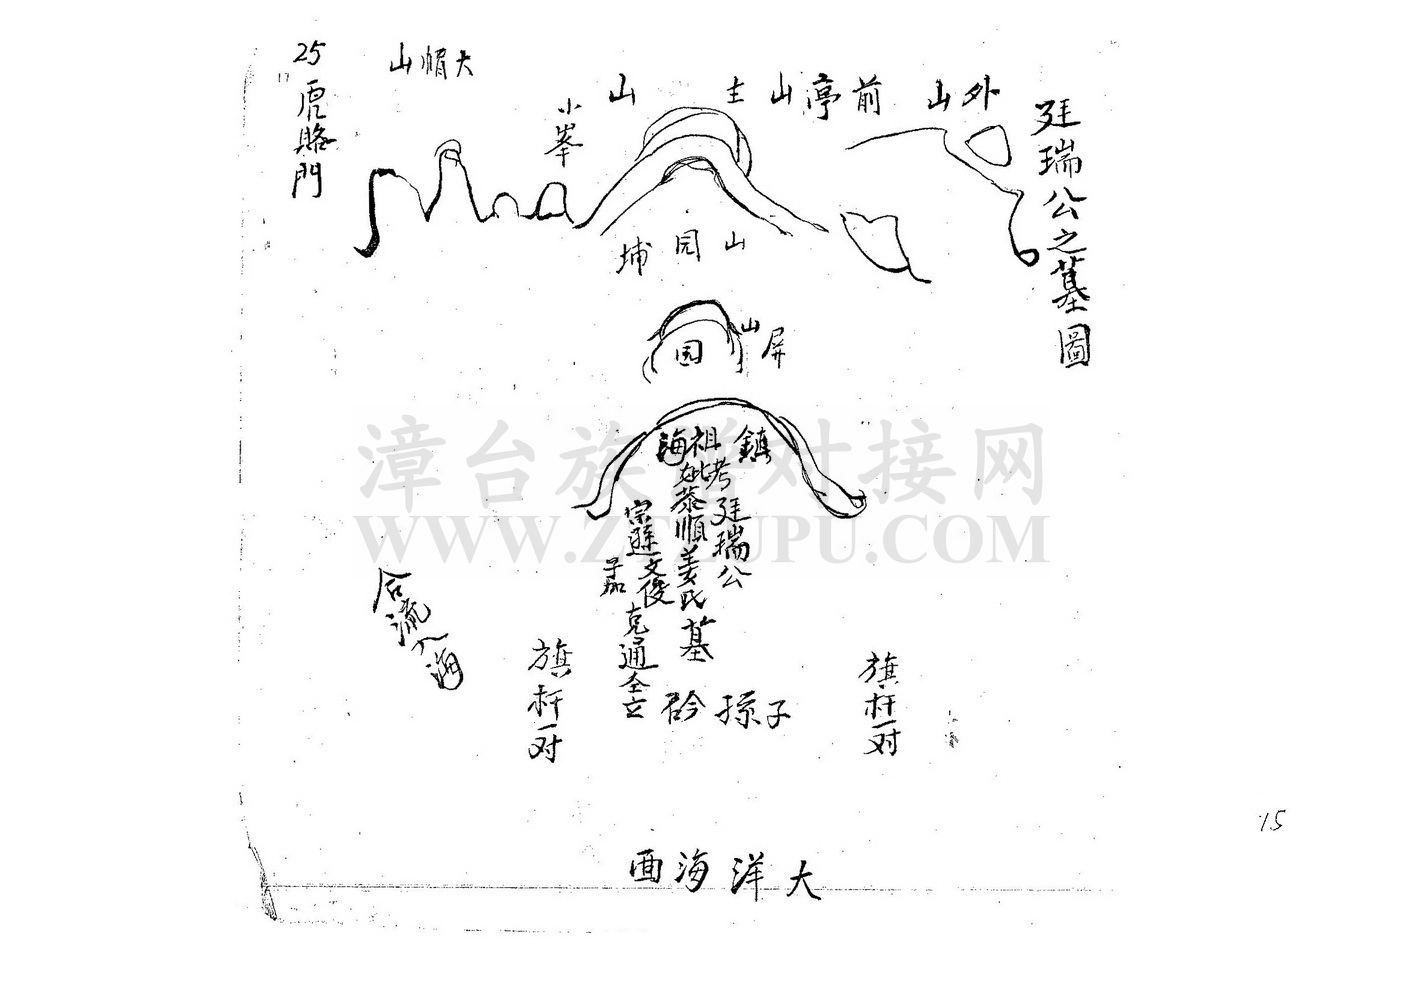 廷瑞公之墓圖
外山
前亭山主山
小峯
大帽山
25
虎賂門
山园埔
屏山
园
鎮海
祖考廷瑞公
妣慈順姜氏墓
宗孫文俊
子孫
克通仝立
旗杆一对
旗杆一对
合流入海
大洋海面
15
漳台族谱对接网
WWW.ZTZUPU.COM